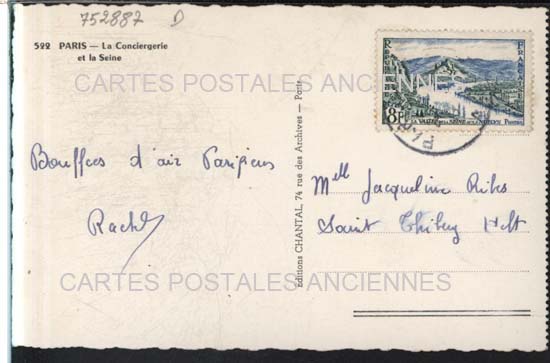 752887 D
522 PARIS — La Conciergerie
et la Seine
CARTES POSTALES ANCIENNES
8F
LA VALLÉE DE LA SEINE AUX ANDELYS POSTES
PARIS
Bouffées d'air Parisiens
Rachel
Editions CHANTAL, 74 rue des Archives — Paris
Melle Jacqueline Ribs
Saint Thibery Hlt
CARTES POSTALES ANCIENNES